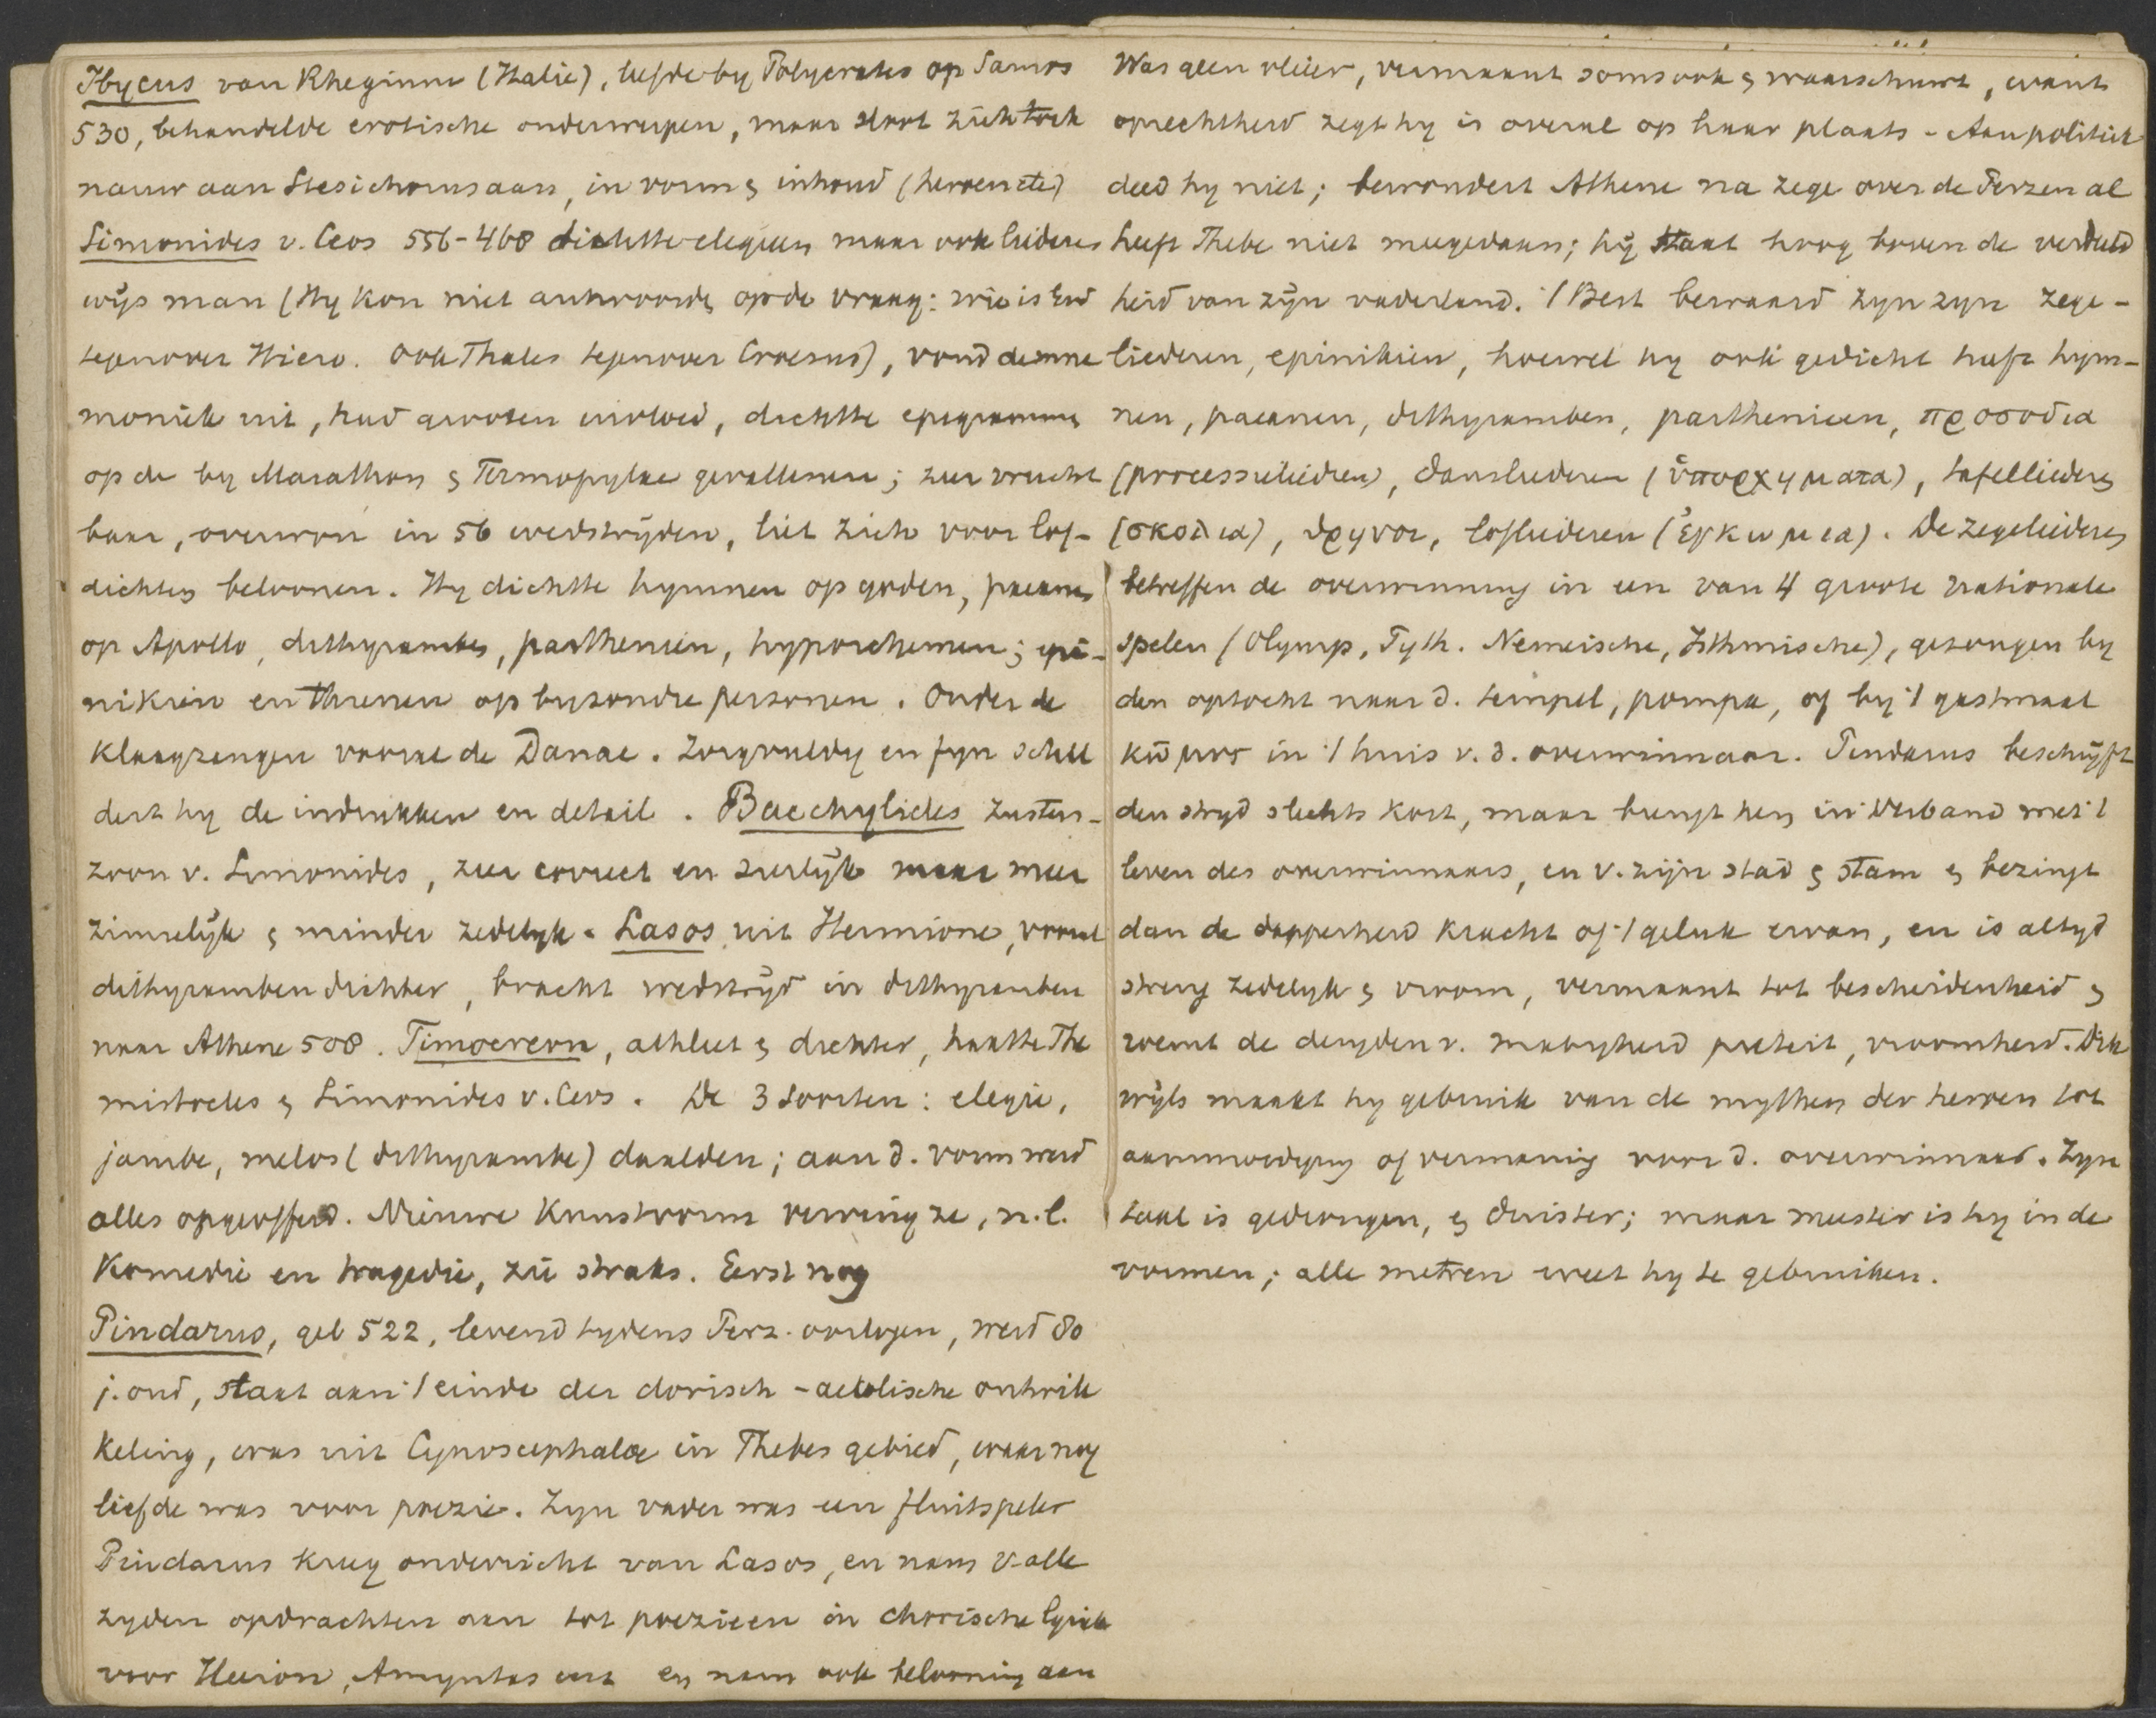 Ibycus van Rheginm (Italie), leefde by Polycrates op Samos
530, behandelde erotische onderwerpen, maar sloot zich toch
nauw aan Stesichorus aan, in vorm & inhoud (heroen etc)
Simonides v. Ceos 556-468 dichtte elegieen maar ook liederen
wijs man (Hy kon niet antwoorden op de vraag: wie is God
tegenover Hiero. Ook Thales tegenover Croesus), vond de mne
moniek uit, had grooten invloed, dichtte epigrammen
op de by Marathon & Termopylae gevallenen; zeer vrucht
baar, overwon in 56 wedstrijden, liet zich voor lof-
dichten beloonen. Hy dichtte hymnen op goden, paeanen
op Apollo, dithyramben, parthenien, hyporchemen; epi-
nikien en threnen op byzondre personen. Onder de
klaagzangen vooral de Danae. Zorgvuldig en fyn schil
dert hy de indrukken en detail. Bacchylides zusters-
zoon v. Simonides, zeer correct en sierlijk maar meer
zinnelijk & minder zedelyk. Lasos uit Hermione, vooral
dithyrambendichter, bracht wedstrijd in dithyramben
naar Athene 508. Timocreon, athleet & dichter, haatte The
mistocles & Simonides v. Ceos. De 3 soorten: elegie,
jambe, melos (dithyrambe) daalden; aan d. vorm werd
alles opgeofferd. Nieuwe kunstvorm verving ze, n.l.
Komedie en tragedie, zie straks. Eerst nog
Pindarus, geb 522, levend tydens Perz. oorlogen, werd 80
j. oud, staat aan 't einde der dorisch-aeolische ontwik
keling, was uit Cynoscephalae in Thebes gebied, waar nog
liefde was voor poezie. Zyn vader was een fluitspeler
Pindarus kreeg onderricht van Lasos, en nam v. alle
zyden opdrachten aan tot poezieen in chorische lyriek
voor Hieron, Amyntas enz en nam ook belooning aan
Was geen vleier, vermaant soms ook & waarschuwt, want
oprechtheid zegt hy is overal op haar plaats - Aan politiek
deed hy niet; bewondert Athene na zege over de Perzen al
heeft Thebe niet meegedaan; hij staat hoog boven de verdeeld
heid van zijn vaderland. 't Best bewaard zyn zyn zege-
liederen, epinikien, hoewel hy ook gedicht heeft hym-
nen, paeanen, dithyramben, parthenieen, προσοδια
(processieliedren), dansliederen (ὑπορχηματα), tafelliederen
(σκολια), θρηνοι, lofliederen (ἐγκωμια). De zegeliederen
betreffen de overwinning in een van 4 groote nationale
spelen (Olymp, Pyth. Nemeische, Isthmische), gezongen by
den optocht naar d. tempel, pompa, of by 't gastmaal
κῶμος in 't huis v. d. overwinnaar. Pindarus beschrijft
den stryd slechts kort, maar brengt hen in verband met 't
leven des overwinnaars, en v. zijn stad & stam & bezingt
dan de dapperheid kracht of 't geluk ervan, en is altyd
streng zedelyk & vroom, vermaant tot bescheidenheid &
roemt de deugden v. matigheid pieteit, vroomheid. Dik
wijls maakt hy gebruik van de mythen der heroen tot
aanmoediging of vermaning voor d. overwinnaar. Zyn
taal is gedrongen, & duister; maar meester is hy in de
vormen; alle metren weet hy te gebruiken.